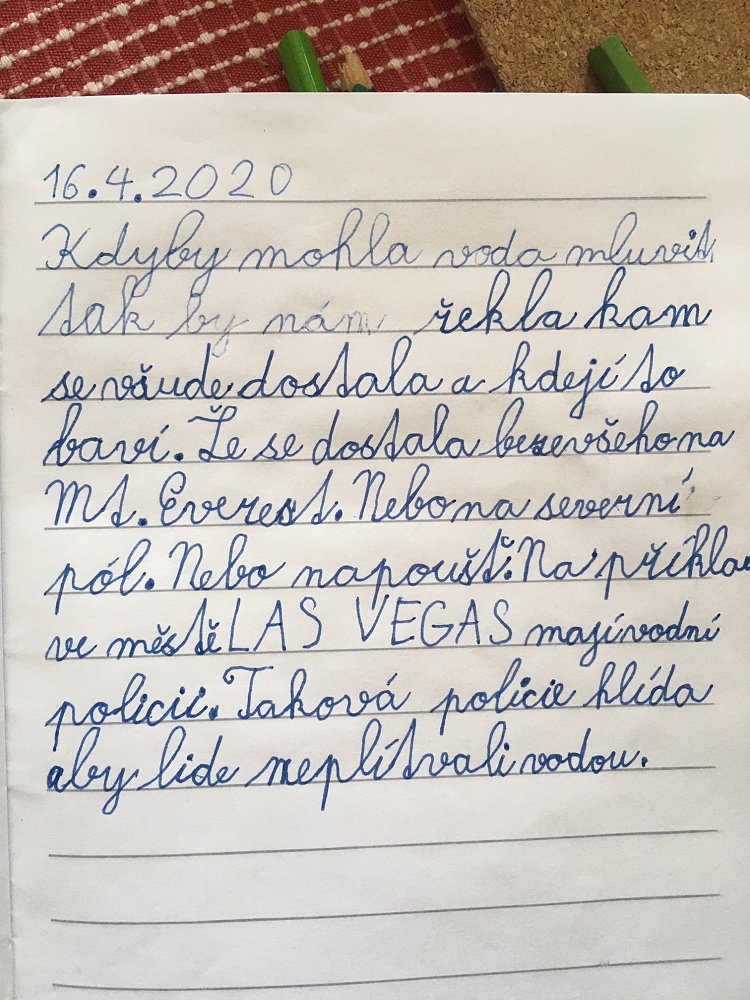 16.4.2020
Kdyby mohla voda mluvit,
tak by nám řekla kam
se všude dostala a kde jí to
baví. Že se dostala beze všeho na
Mt. Everest. Nebo na severní
pól. Nebo na poušť. Na příklad
ve městě LAS VEGAS mají vodní
policii. Taková policie hlída
aby lide neplítvali vodou.